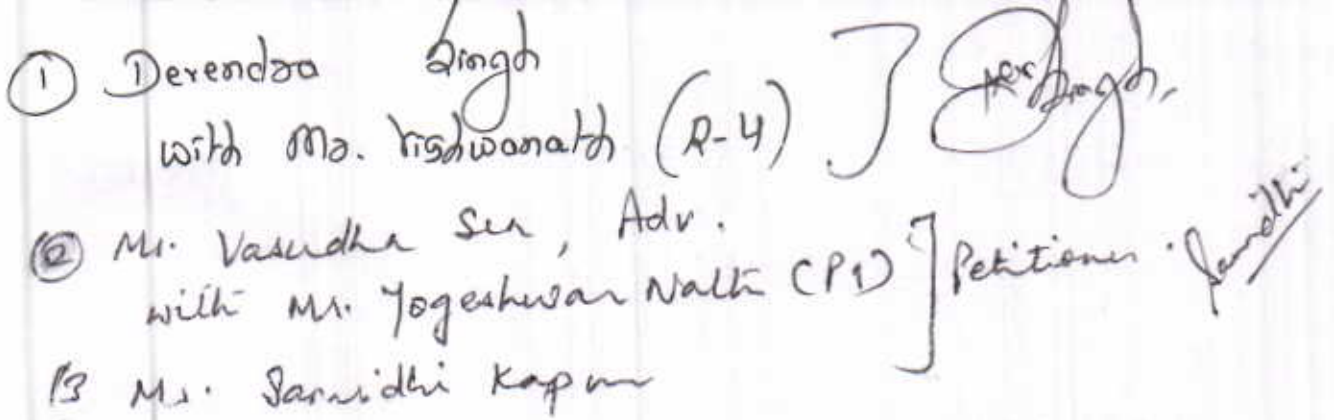 ① Devendra Singh
with Mr. Vishwanath (R-4) ] Dev Singh
② Ms. Vasudha Sen, Adv.
with Mr. Yogeshwar Nath (P1) ] Petitioner. Sannidhi
③ Ms. Sannidhi Kapur